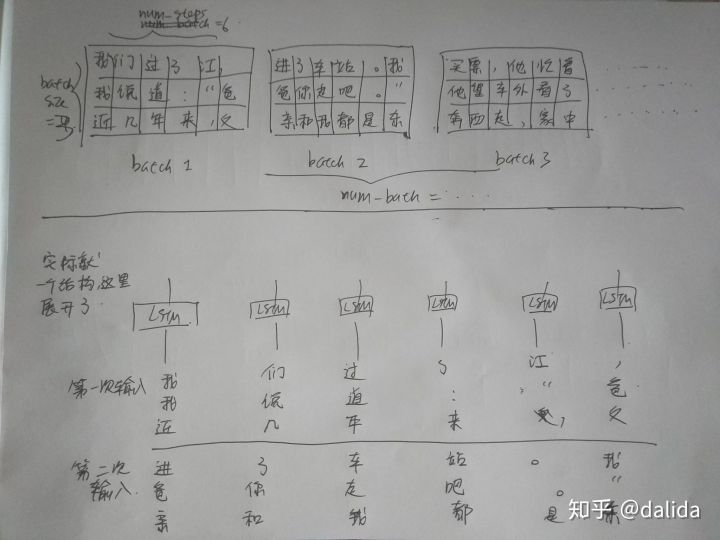 num-steps
num batch = 6
batch size = 3
我 们 过 了 江 ,
我 说 道 : “ 爸
近 几 年 来 , 父
batch 1
进 了 车 站 。 我
爸 你 走 吧 。 ”
亲 和 我 都 是 东
batch 2
买 票 , 他 忙 着
他 望 车 外 看 了
奔 西 走 , 家 中
batch 3
num-bath = ....
实际就
一个结构,这里
展开了.
LSTM LSTM LSTM LSTM LSTM LSTM
第一次输入
我 们 过 了 江 ,
我 说 道 : “ 爸
近 几 年 来 , 父
第二次
输入.
进 了 车 站 。 我
爸 你 走 吧 。 ”
亲 和 我 都 是 东
知乎 @dalida